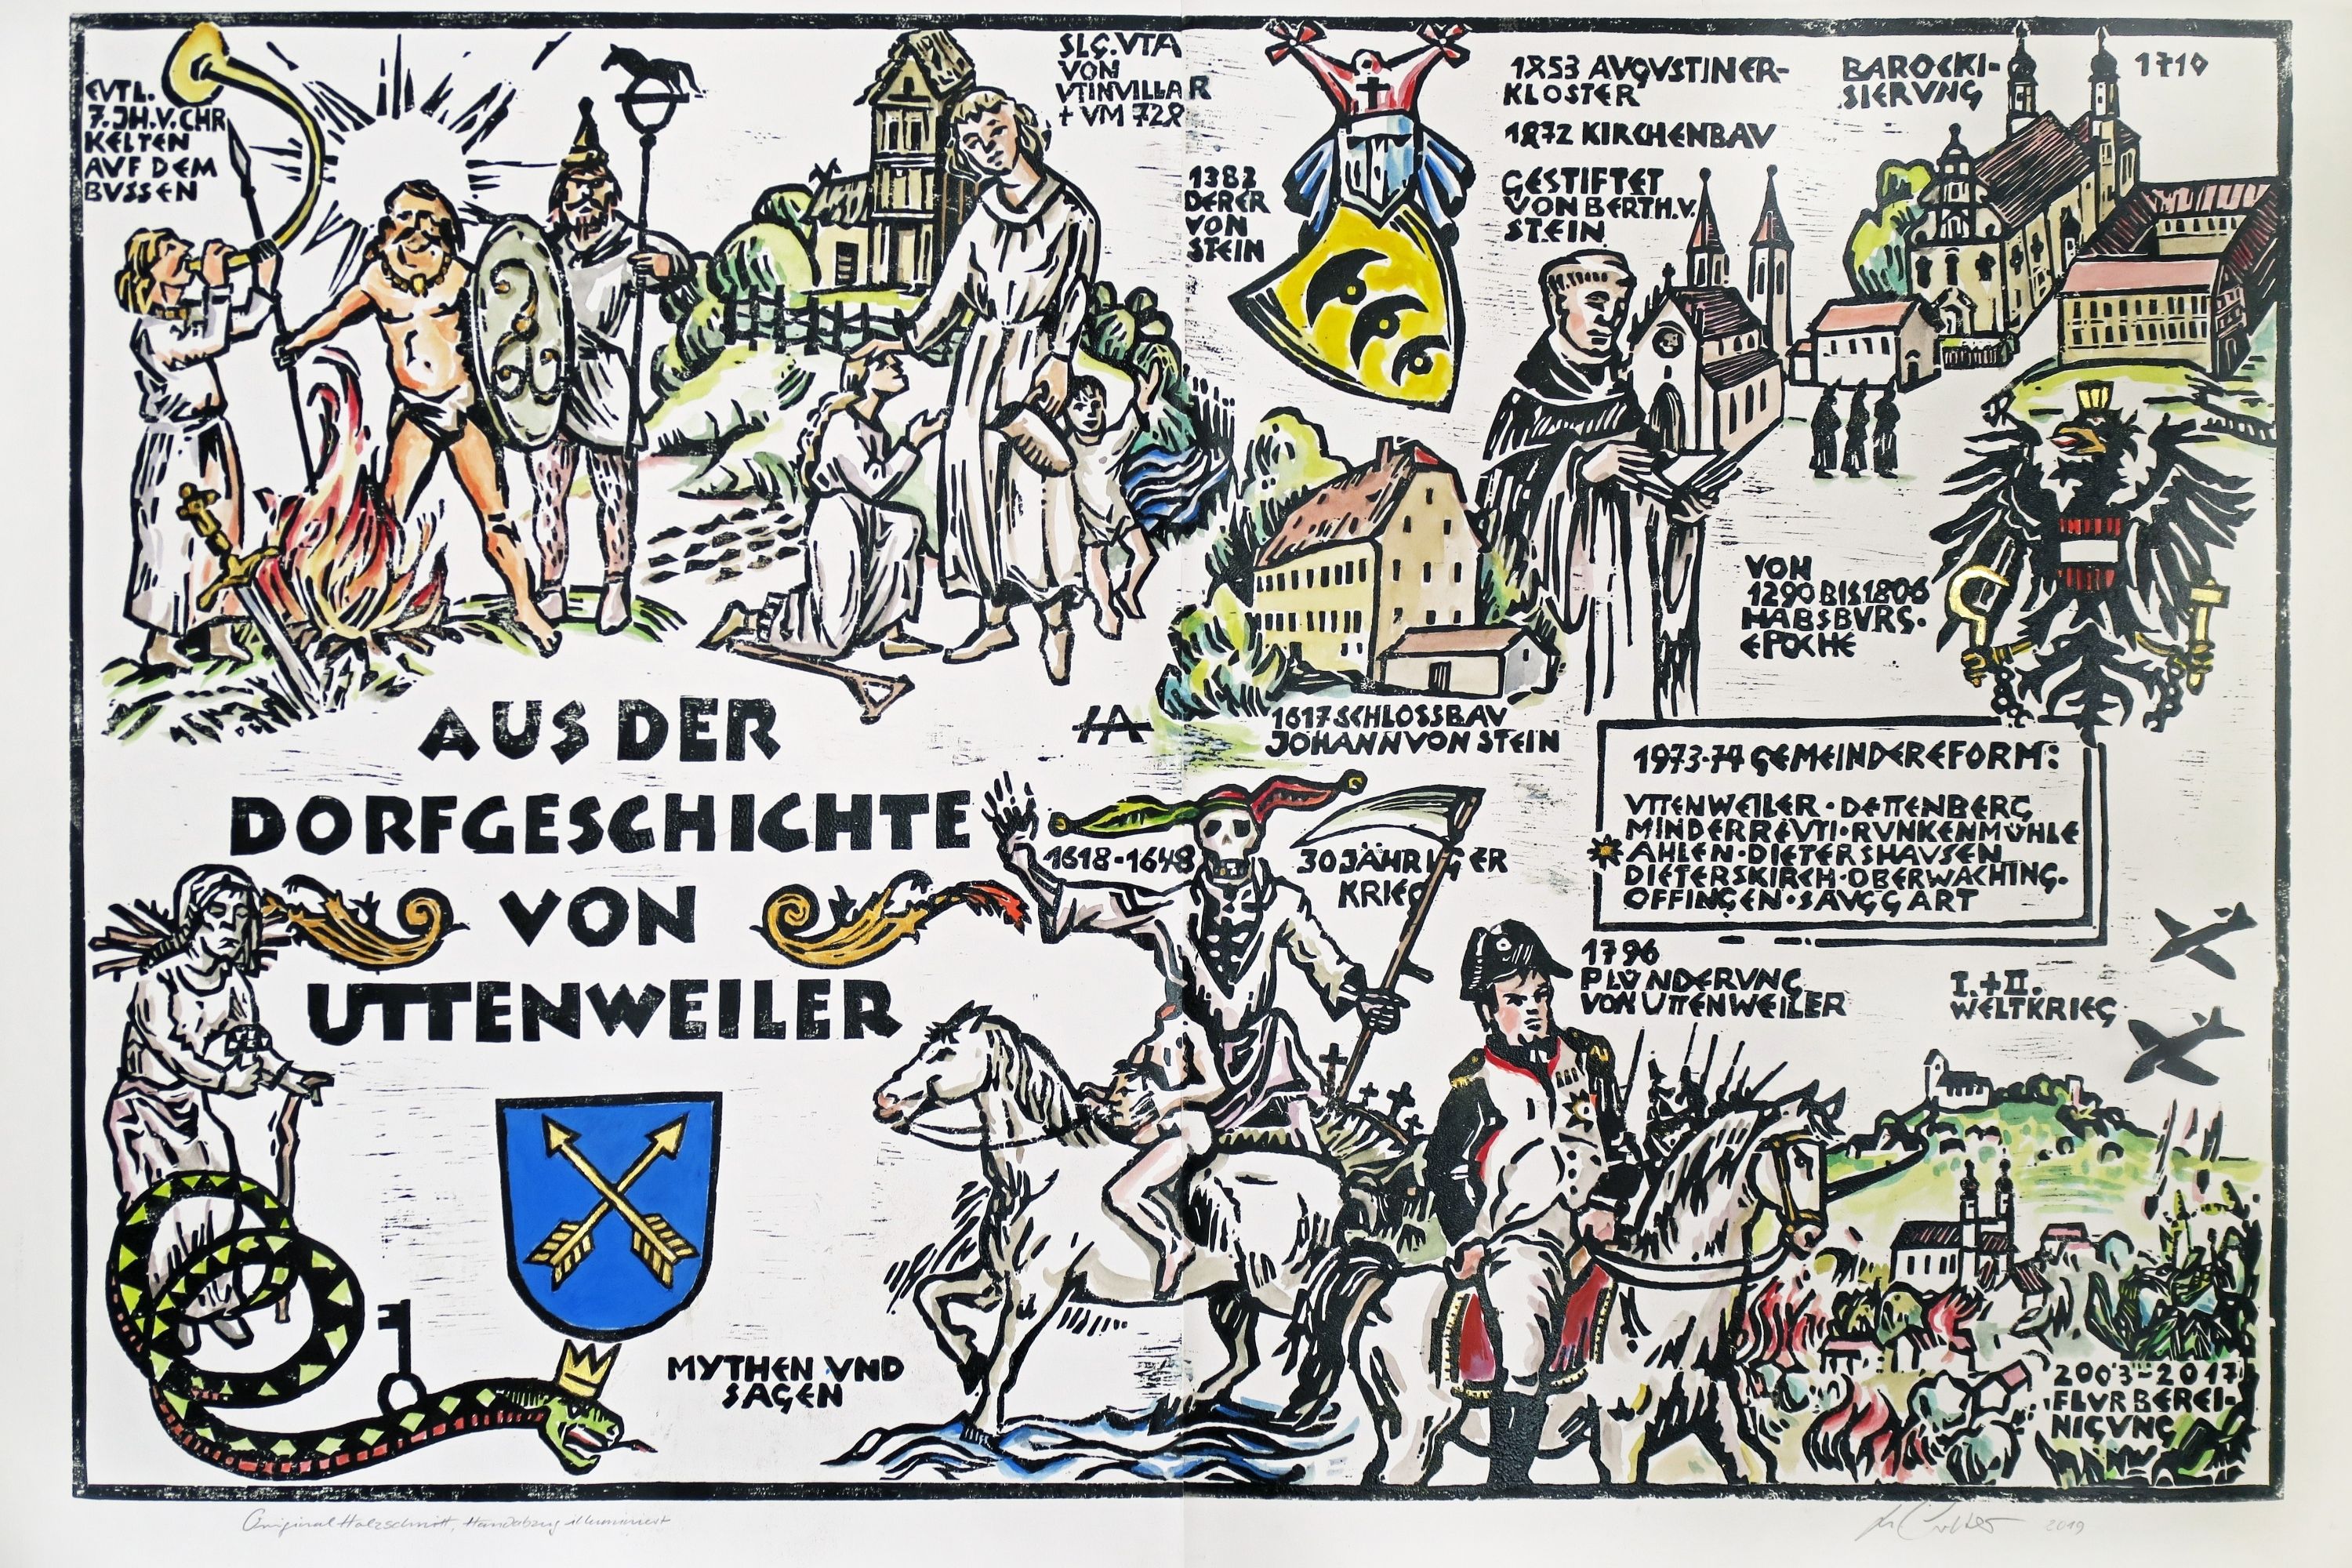 EVTL.
7. JH. V. CHR
KELTEN
AUF DEM
BUSSEN
SLG. UTA
VON
UTINVILLAR
+ UM 728
1383
DERER
VON
STEIN
1853 AUGUSTINER-
KLOSTER
1872 KIRCHENBAU
GESTIFTET
VON BERTH. V.
STEIN
BAROCKI-
SIERUNG
1710
VON
1290 BIS 1806
HABSBURG.
EPOCHE
1617 SCHLOSSBAU
JOHANN VON STEIN
AUS DER
DORFGESCHICHTE
VON
UTTENWEILER
1618-1648
30 JÄHRIGER
KRIEG
1973-74 GEMEINDEREFORM:
UTTENWEILER · DETTENBERG
MINDERREUTI · RUNKENMÜHLE
AHLEN · DIETERSHAUSEN
DIETERSKIRCH · OBERWACHING.
OFFINGEN · SAUGGART
1796
PLÜNDERUNG
VON UTTENWEILER
I. + II.
WELTKRIEG
MYTHEN UND
SAGEN
2003-2017
FLURBEREI-
NIGUNG
Original Holzschnitt, Handabzug illuminiert
2019